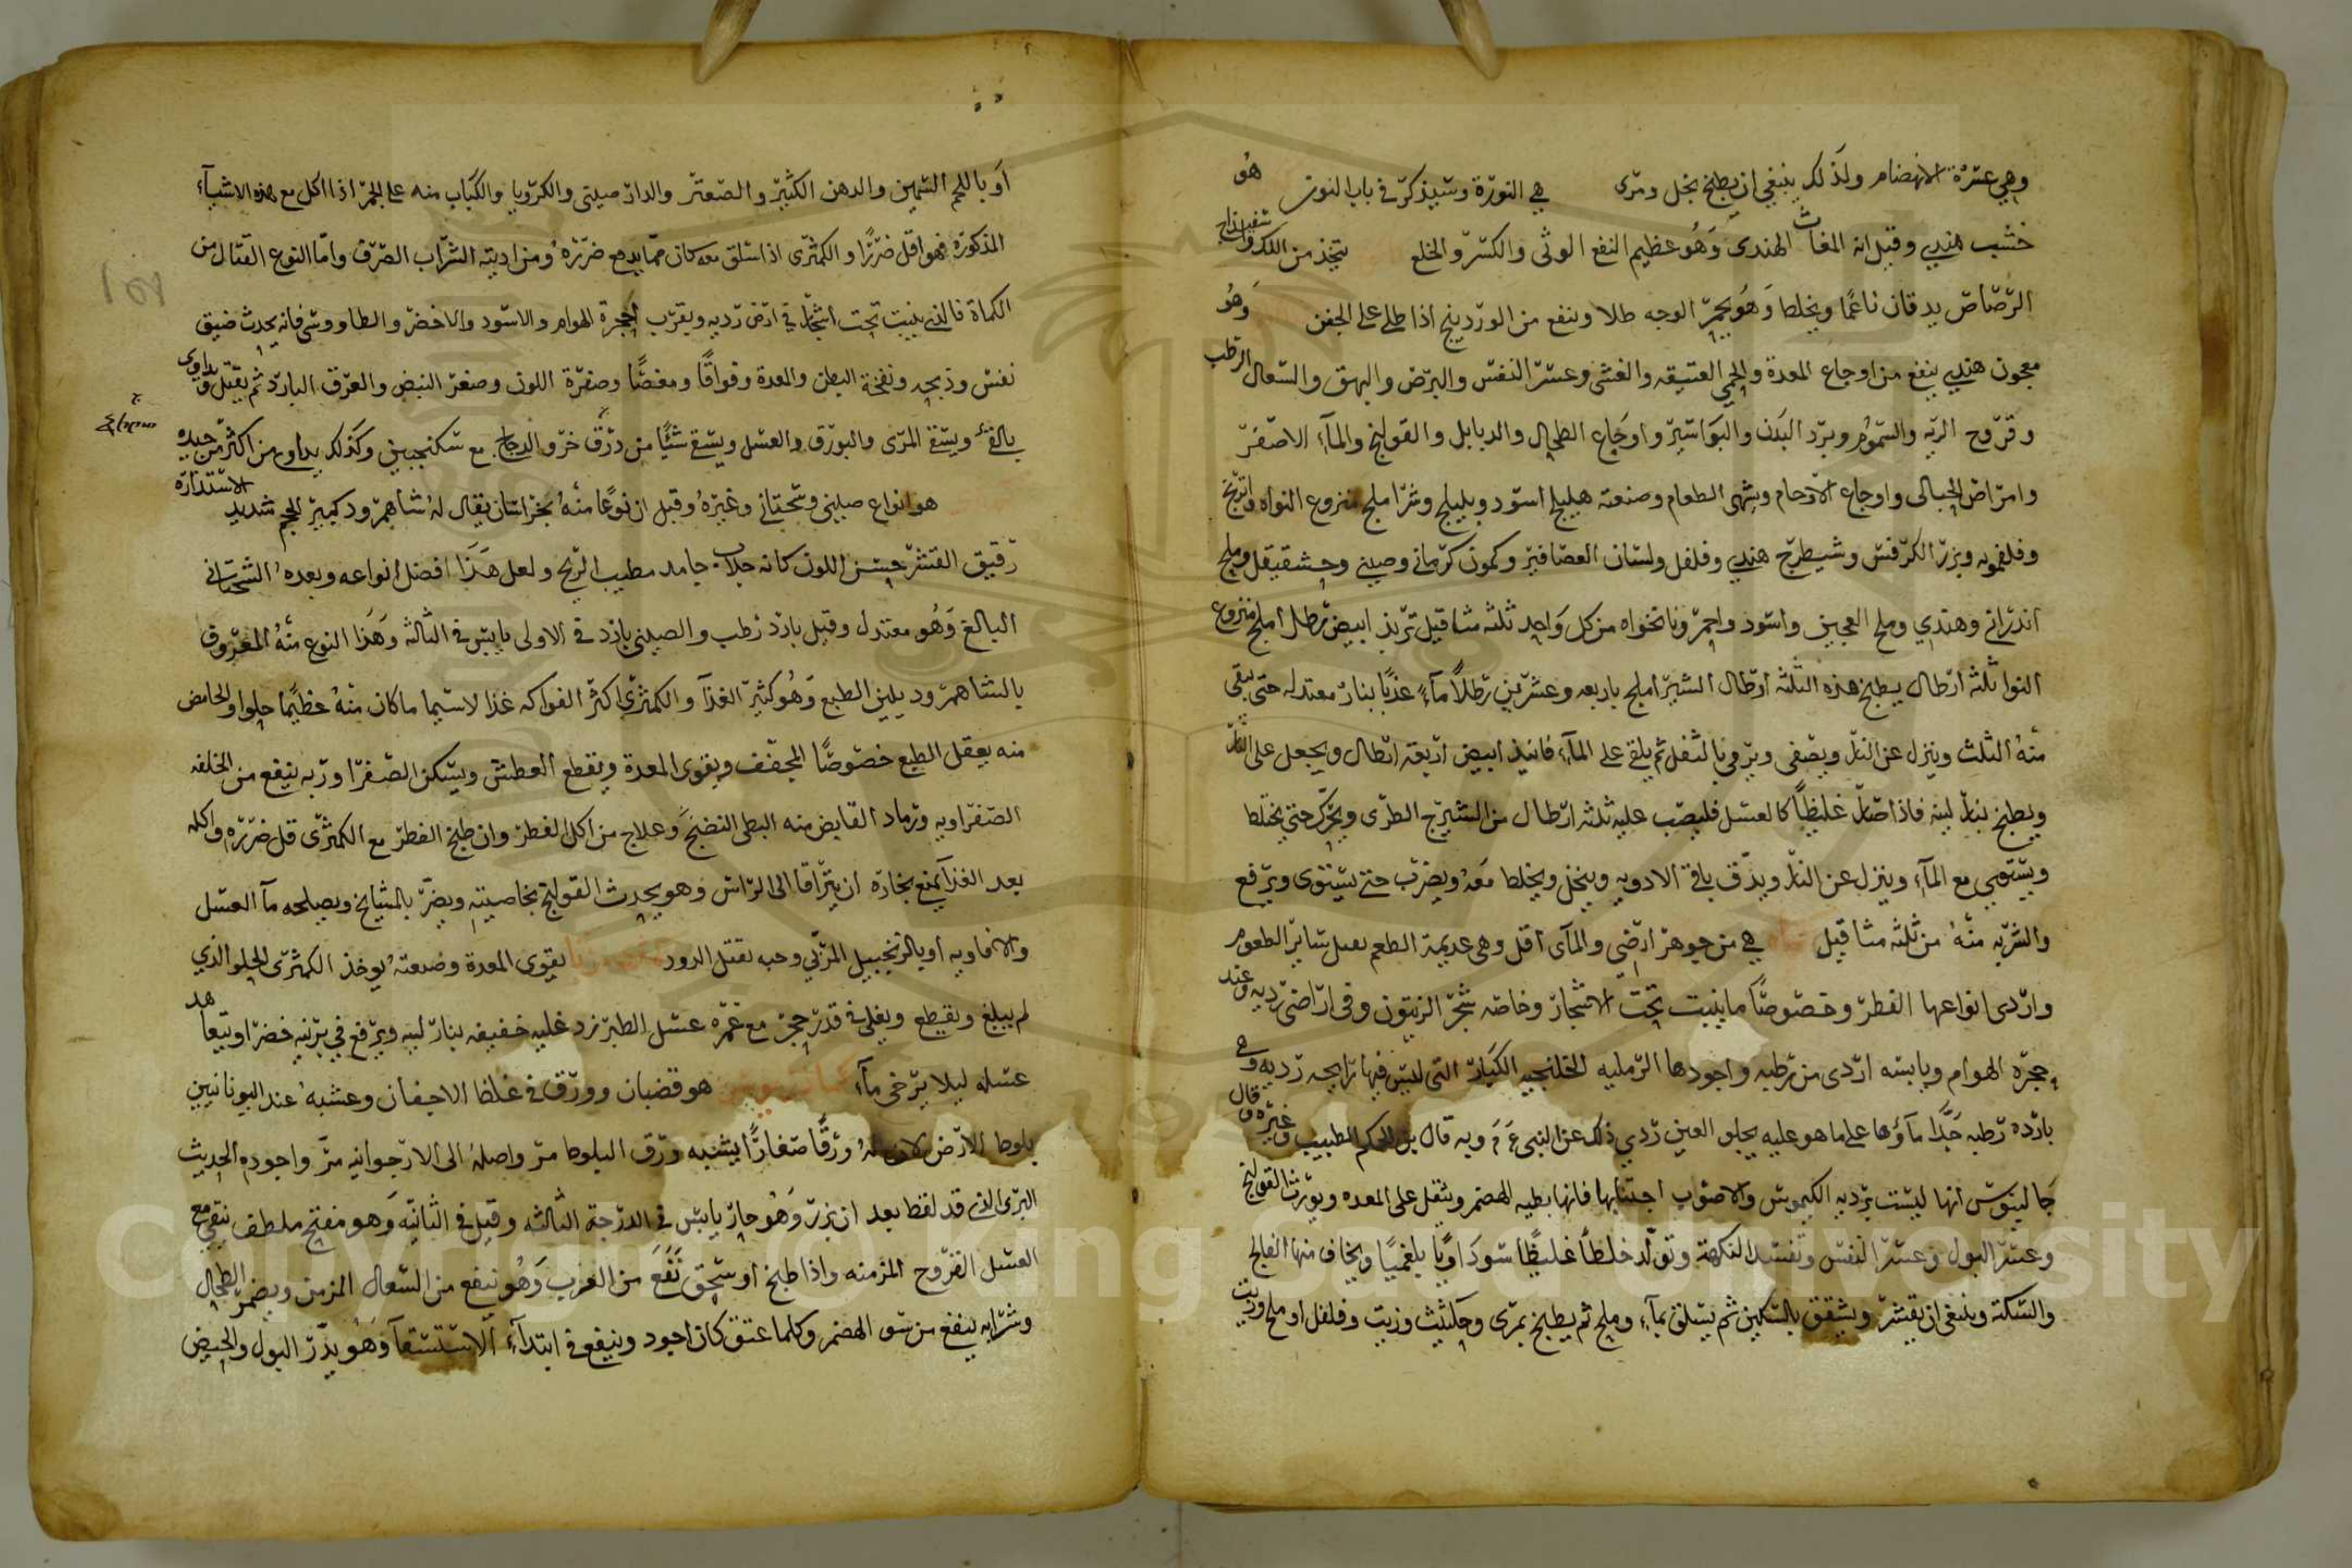 وهي عسرة الانهضام ولذلك ينبغي ان يطبخ بخل ومرى هي النورة وسيذكر في باب النون هو
خشب هندي وقيل انه المغاث الهندى وهو عظيم النفع الوثى والكسر والخلع يتخذ من
الرصاص يدقان ناعما ويخلط وهو يحمر الوجه طلا وينفع من الوردينج اذا طلي على الجفن وهو
معجون هندي ينفع من اوجاع المعدة والحمى العتيقه والغشى وعسر النفس والبرص والبهق والسعال الرطب
وقروح الريه والسموم وبرد البدن والبواسير واوجاع الطحال والدبابل والقولنج والمآء الاصفر
وامراض الحبالى واوجاع الارحام ويشهى الطعام وصنعته هليلج اسود وبليلج وشرا ملج منزوع النواه
وفلفمويه وبزر الكرفس وشيطرج هندي وفلفل ولسان العصافير وكمون كرمانى وصينى وملح
اندرانى وهندي وملح العجين واسود واحمر ونانخواه من كل واحد ثلثه مثاقيل تربذ ابيض رطل املج منزوع
النوا ثلثه ارطال يطبخ هذه الثلثه ارطال الشير املج باربعه وعشرين رطلا مآء عذبا بنار معتدله حتى يبقى
منه الثلث وينزل عن النار ويصفى ويرمى بالثفل ثم يلقى على المآء فانيذ ابيض اربعة ارطال ويجعل على النار
ويطبخ بنار لينه فاذا صار غليظا كالعسل فليصب عليه ثلثه ارطال من الشيرج الطرى ويحرك حتى يختلط
ويستوى مع المآء وينزل عن النار ويدق باقى الادويه وينخل ويخلط معه ويضرب حتى يستوى ويرفع
والشربه منه من ثلثه مثاقيل هي من جوهر ارضى والمآى اقل وهي عديمة الطعم سائر الطعوم
واردى انواعها الفطر وخصوصا ما ينبت تحت الاشجار وخاصه شجر الزيتون وفى اراضى رديه وعند
حجره الهوام ويابسه اردى من رطبه واجودها الرمليه الخلنجيه الكبار التى ليس فيها رايحه رديه وهي
بارده رطبه جدا مآؤها على ما هو عليه يجلو العين ردي ذلك عن النبي وبه قال الطبيب وغيره وقال
جالينوس انها ليست برديه الكيموس والاصوب اجتنابها فانها بطيه الهضم وتثقل على المعده ويورث القولنج
وعسر البول وعسر النفس وتفسد النكهة وتولد خلطا غليظا سوداويا بلغميا ويخاف منها الفالج
والسكتة وينبغى ان يقشر ويشقق بالسكين ثم يسلق بمآء وملح ثم يطبخ بمرى وحلتيت وزيت وفلفل او ملح وزيت
او باللحم السمين والدهن الكثير والصعتر والدار صينى والكرويا والكباب منه على الجمر اذا اكل مع هذه الاشيآء
المذكورة فهو اقل ضررا والكمثرى اذا سلق معه كان مما يدفع ضرره ومن ادويته الشراب الصرف واما النوع القتال من
الكماة فالذى ينبت تحت اشجار في ارض رديه ويقرب احجرة الهوام والاسود والاخضر والطاووسى فانه يحدث ضيق
نفس وذبحه ونفخة البطن والمعدة وفواقا ومغصا وصفرة اللون وصغر النبض والعرق البارد ثم يقتل ويداوى
بالقئ ويسقى المرى والبورق والعسل ويسقى شئا من ذرق خرو الدجاج مع سكنجبين وكذلك يداوى من اكثر من جيده
هو انواع صينى وسجستانى وغيره وقيل ان نوعا منه بخراسان يقال له شاهمرود كبير الحجم شديد الاستدارة
رقيق القشر حسن اللون كانه جلاب جامد مطيب الريح ولعل هذا افضل انواعه وبعده السجستانى
البالغ وهو معتدل وقيل بارد رطب والصينى بارد في الاولى يابس في الثالثه وهذا النوع منه المعروف
بالشاهمرود يلين الطبع وهو كثير الغذآ والكمثرى اكثر الفواكه غذا لاسيما ما كان منه عظيما حلوا والحامض
منه يعقل الطبع خصوصا المجفف ويقوى المعدة ويقطع العطش ويسكن الصفرا وربه ينفع من الخلفه
الصفراويه ورماد القابض منه البطى النضج وعلاج من اكل الفطر وان طبخ الفطر مع الكمثرى قل ضرره واكله
بعد الغذآ يمنع بخاره ان يتراقا الى الراس وهو يحدث القولنج بخاصيته ويضر بالمشايخ ويصلحه مآ العسل
والافاويه او بالزنجبيل المربى وحبه يقتل الدود يقوى المعدة وصنعته يوخذ الكمثرى الحلو الذي
لم يبلغ ويقطع ويغلى في قدر حجر مع غمره عسل الطبرزد غليه خفيفه بنار لينه ويرفع في برنيه خضرا ويتعاهد
عسله ليلا يرخى مآء هو قضبان وورق في غلظ الاجفان وعشبه عند اليونانيين
بلوط الارض لان له ورقا صغارا يشبه ورق البلوط مر واصله الى الارجوانيه مر واجوده الحديث
البرى الذى قد لقط بعد ان بزر وهو حار يابس في الدرجة الثالثه وقيل في الثانيه وهو مفتح ملطف ينقى مع
العسل القروح المزمنه واذا طبخ او سحق نفع من الغرب وهو ينفع من السعال المزمن ويضمر الطحال
وشرابه ينفع من سو الهضم وكلما عتق كان اجود وينفع في ابتدآء الاستسقآ وهو يدر البول والحيض
Copyright © King Saud University